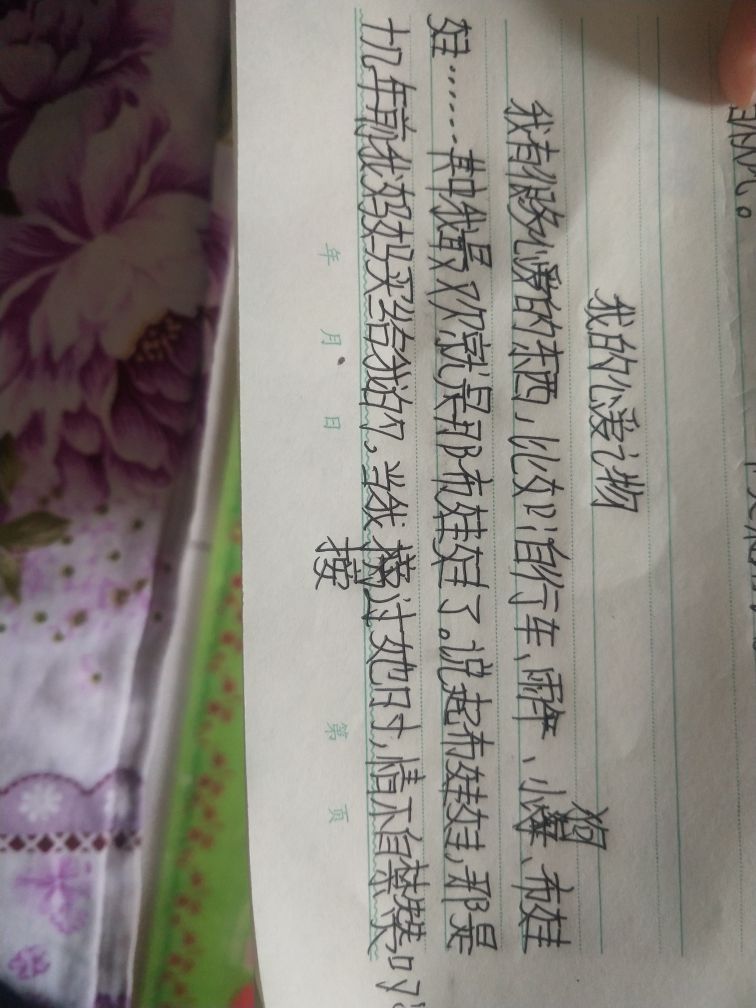 我的心爱之物
我有很多心爱的东西，比如：自行车、雨伞、小狗、布娃
娃……其中我最欢就是那布娃娃了。说起布娃娃，那是
十几年前我妈妈买给我的。当我接过她时，情不自禁
年 月 日 第 页